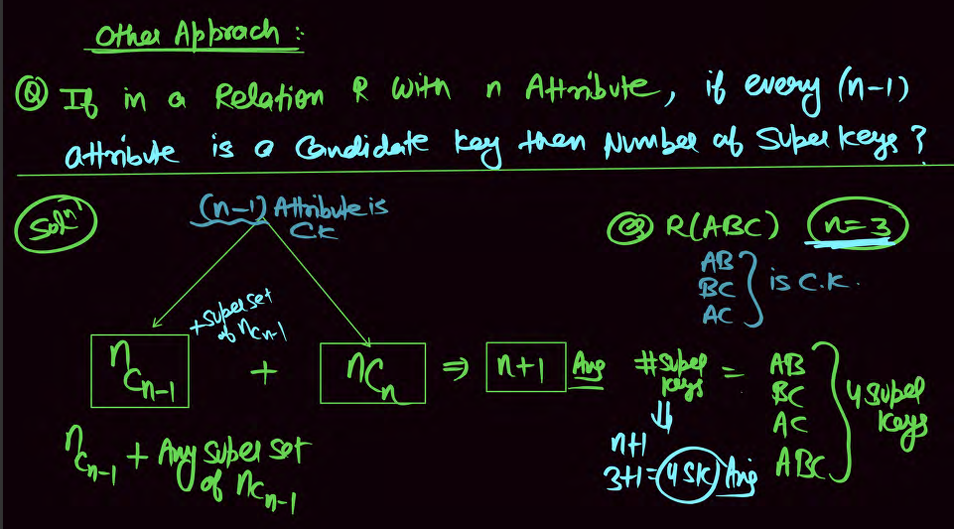 Other Approach :
Q If in a Relation R With n Attribute, if every (n-1)
attribute is a Candidate key then Number of Super keys ?
Solⁿ
(n-1) Attribute is
C.K
+ super set
of nCn-1
nCn-1 + nCn ⇒ n+1 Ans
nCn-1 + Any super set
of nCn-1
eg R(ABC) n=3
AB
BC
AC
} is C.K.
#super
keys =
AB
BC
AC
ABC
} 4 super
keys
⇓
n+1
3+1 = 4 SK Ans